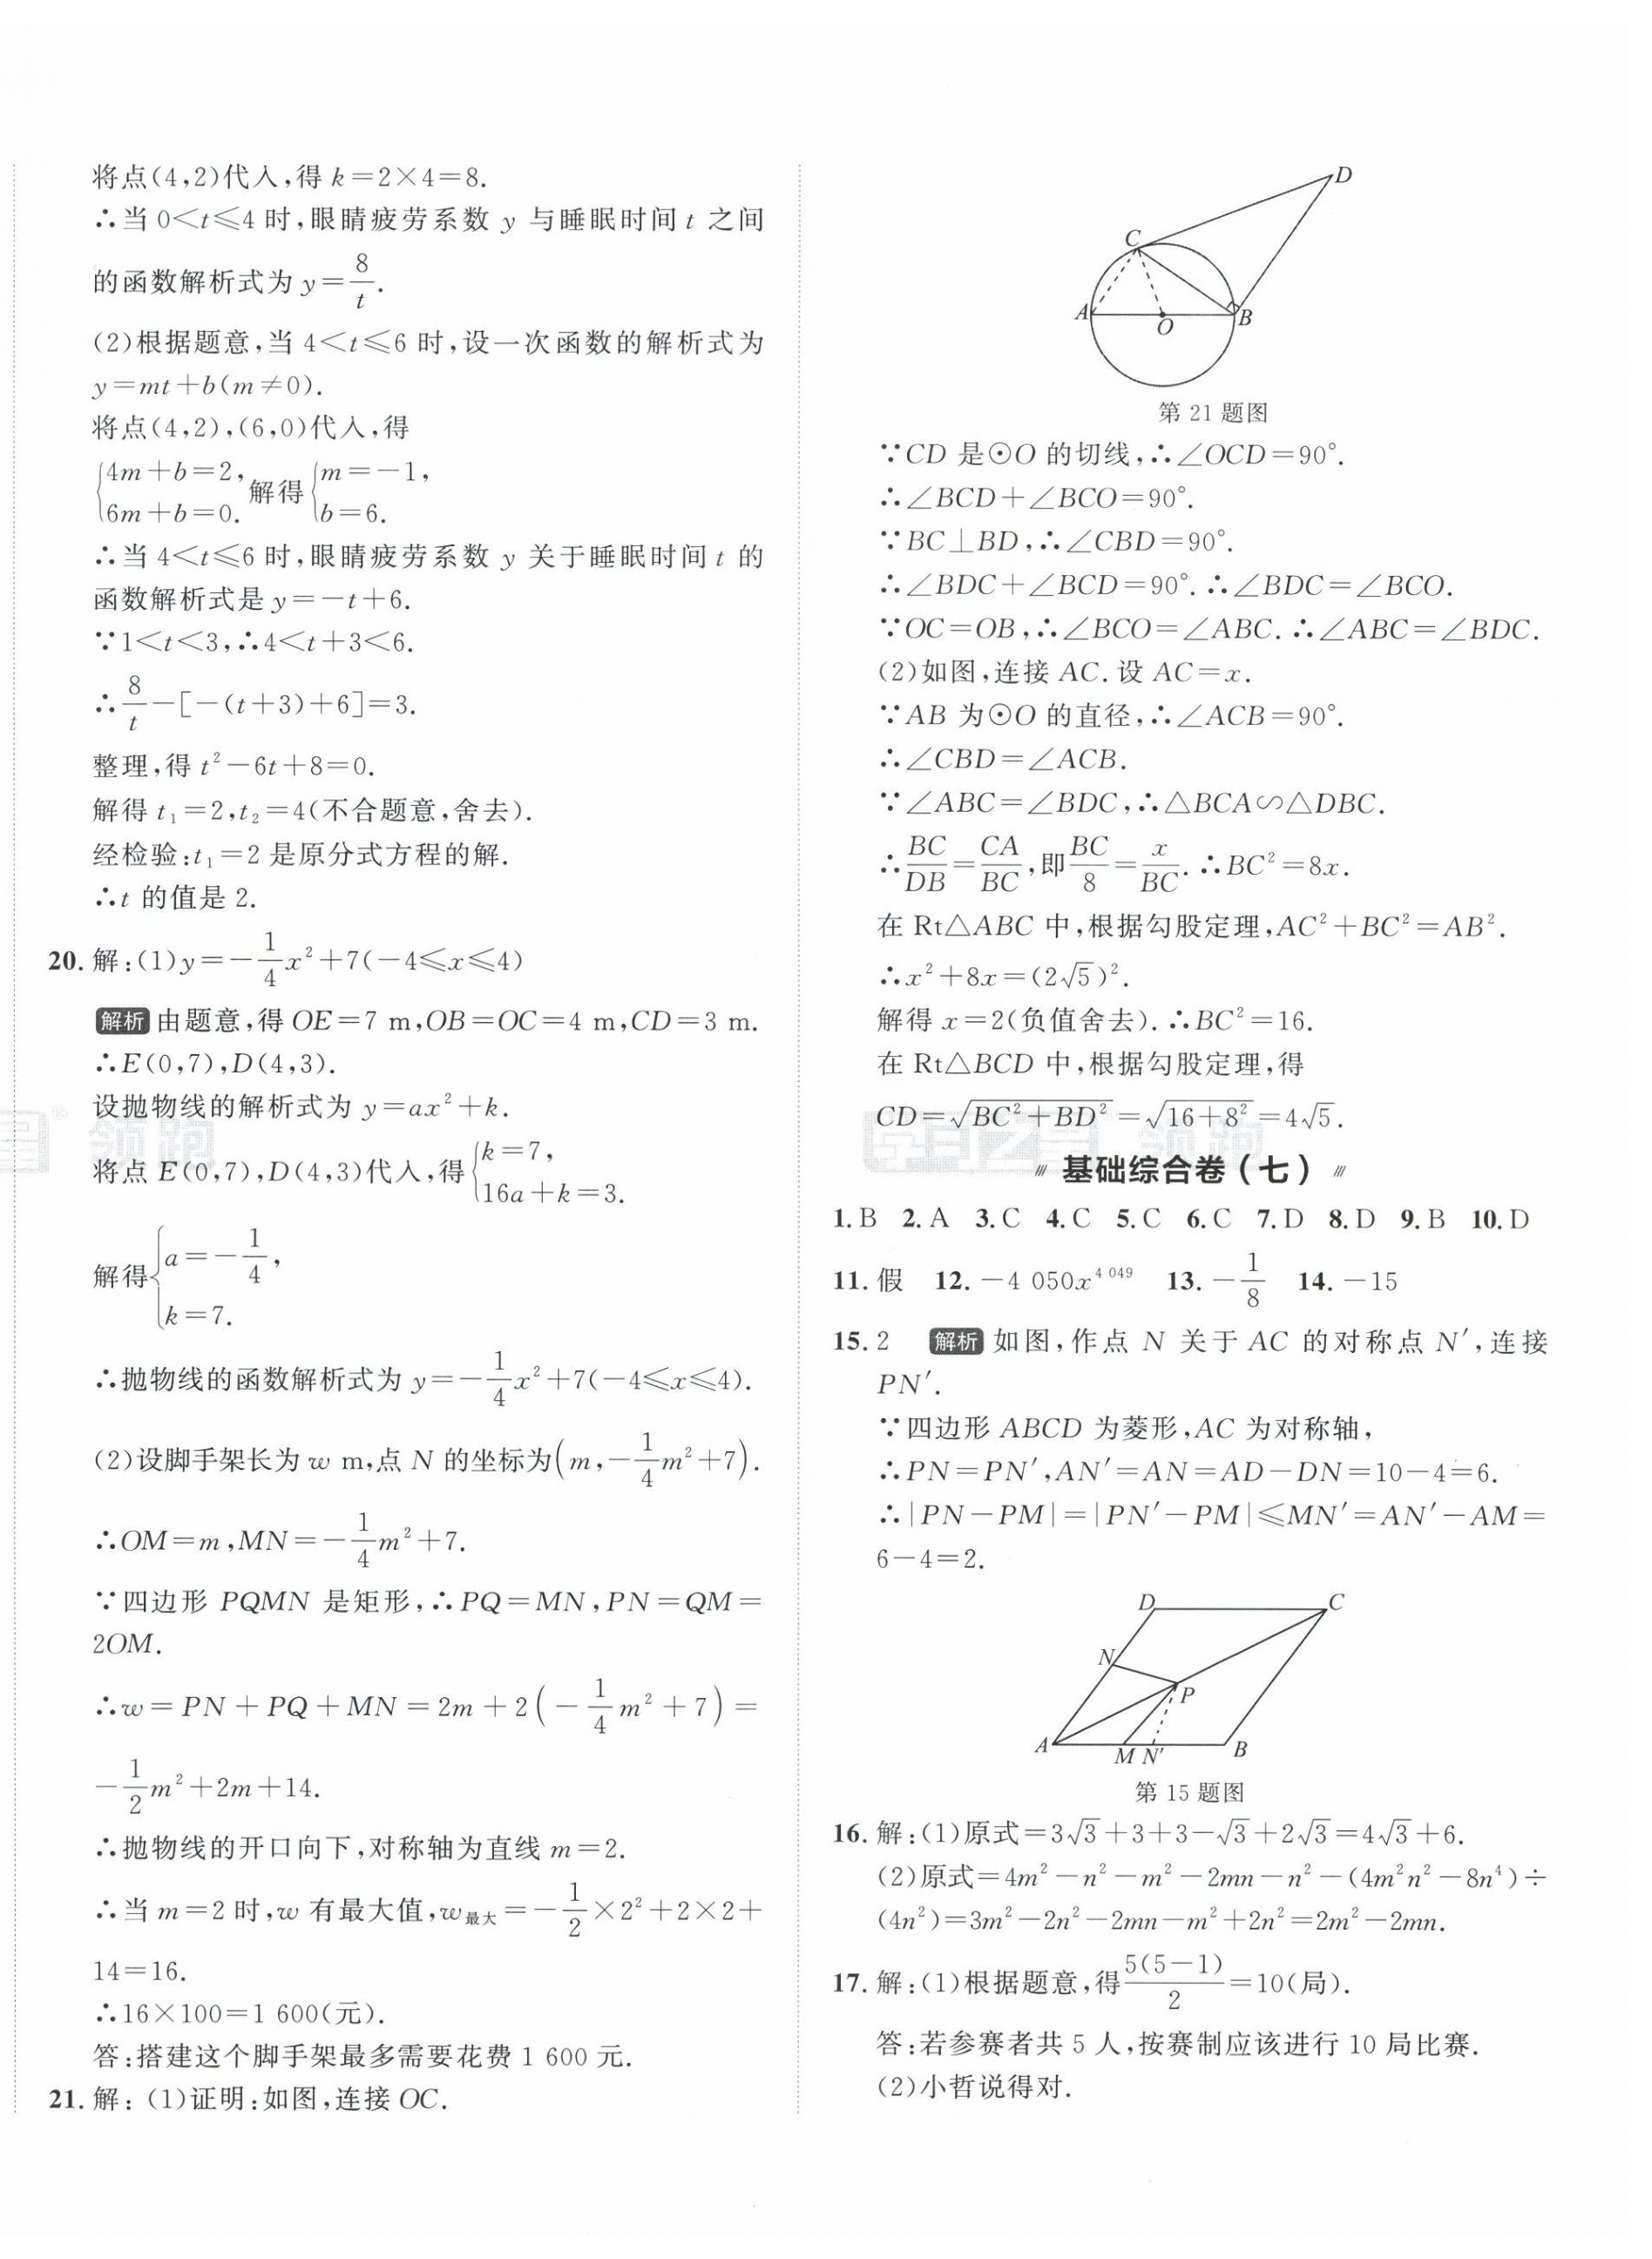 将点(4,2)代入,得 k=2×4=8.
∴当 0<t≤4 时,眼睛疲劳系数 y 与睡眠时间 t 之间
的函数解析式为 y=8/t.
(2)根据题意,当 4<t≤6 时,设一次函数的解析式为
y=mt+b(m≠0).
将点(4,2),(6,0)代入,得
{4m+b=2, 6m+b=0. 解得 {m=-1, b=6.
∴当 4<t≤6 时,眼睛疲劳系数 y 关于睡眠时间 t 的
函数解析式是 y=-t+6.
∵1<t<3,∴4<t+3<6.
∴8/t-[-(t+3)+6]=3.
整理,得 t²-6t+8=0.
解得 t₁=2,t₂=4(不合题意,舍去).
经检验:t₁=2 是原分式方程的解.
∴t 的值是 2.
20. 解:(1)y=-1/4x²+7(-4≤x≤4)
解析 由题意,得 OE=7 m,OB=OC=4 m,CD=3 m.
∴E(0,7),D(4,3).
设抛物线的解析式为 y=ax²+k.
将点 E(0,7),D(4,3)代入,得 {k=7, 16a+k=3.
解得 {a=-1/4, k=7.
∴抛物线的函数解析式为 y=-1/4x²+7(-4≤x≤4).
(2)设脚手架长为 w m,点 N 的坐标为(m,-1/4m²+7).
∴OM=m,MN=-1/4m²+7.
∵四边形 PQMN 是矩形,∴PQ=MN,PN=QM=
2OM.
∴w=PN+PQ+MN=2m+2(-1/4m²+7)=
-1/2m²+2m+14.
∴抛物线的开口向下,对称轴为直线 m=2.
∴当 m=2 时,w 有最大值,w最大=-1/2×2²+2×2+
14=16.
∴16×100=1 600(元).
答:搭建这个脚手架最多需要花费 1 600 元.
21. 解: (1)证明:如图,连接 OC.
D
C
A
O
B
第 21 题图
∵CD 是⊙O 的切线,∴∠OCD=90°.
∴∠BCD+∠BCO=90°.
∵BC⊥BD,∴∠CBD=90°.
∴∠BDC+∠BCD=90°.∴∠BDC=∠BCO.
∵OC=OB,∴∠BCO=∠ABC.∴∠ABC=∠BDC.
(2)如图,连接 AC.设 AC=x.
∵AB 为⊙O 的直径,∴∠ACB=90°.
∴∠CBD=∠ACB.
∵∠ABC=∠BDC,∴△BCA∽△DBC.
∴BC/DB=CA/BC,即BC/8=x/BC.∴BC²=8x.
在 Rt△ABC 中,根据勾股定理,AC²+BC²=AB².
∴x²+8x=(2√5)².
解得 x=2(负值舍去).∴BC²=16.
在 Rt△BCD 中,根据勾股定理,得
CD=√(BC²+BD²)=√(16+8²)=4√5.
基础综合卷(七)
1. B 2. A 3. C 4. C 5. C 6. C 7. D 8. D 9. B 10. D
11. 假 12. -4 050x⁴ ⁰⁴⁹ 13. -1/8 14. -15
15. 2 解析 如图,作点 N 关于 AC 的对称点 N′,连接
PN′.
∵四边形 ABCD 为菱形,AC 为对称轴,
∴PN=PN′,AN′=AN=AD-DN=10-4=6.
∴|PN-PM|=|PN′-PM|≤MN′=AN′-AM=
6-4=2.
D
C
N
P
A
M N′
B
第 15 题图
16. 解:(1)原式=3√3+3+3-√3+2√3=4√3+6.
(2)原式=4m²-n²-m²-2mn-n²-(4m²n²-8n⁴)÷
(4n²)=3m²-2n²-2mn-m²+2n²=2m²-2mn.
17. 解:(1)根据题意,得5(5-1)/2=10(局).
答:若参赛者共 5 人,按赛制应该进行 10 局比赛.
(2)小哲说得对.
领跑
领跑